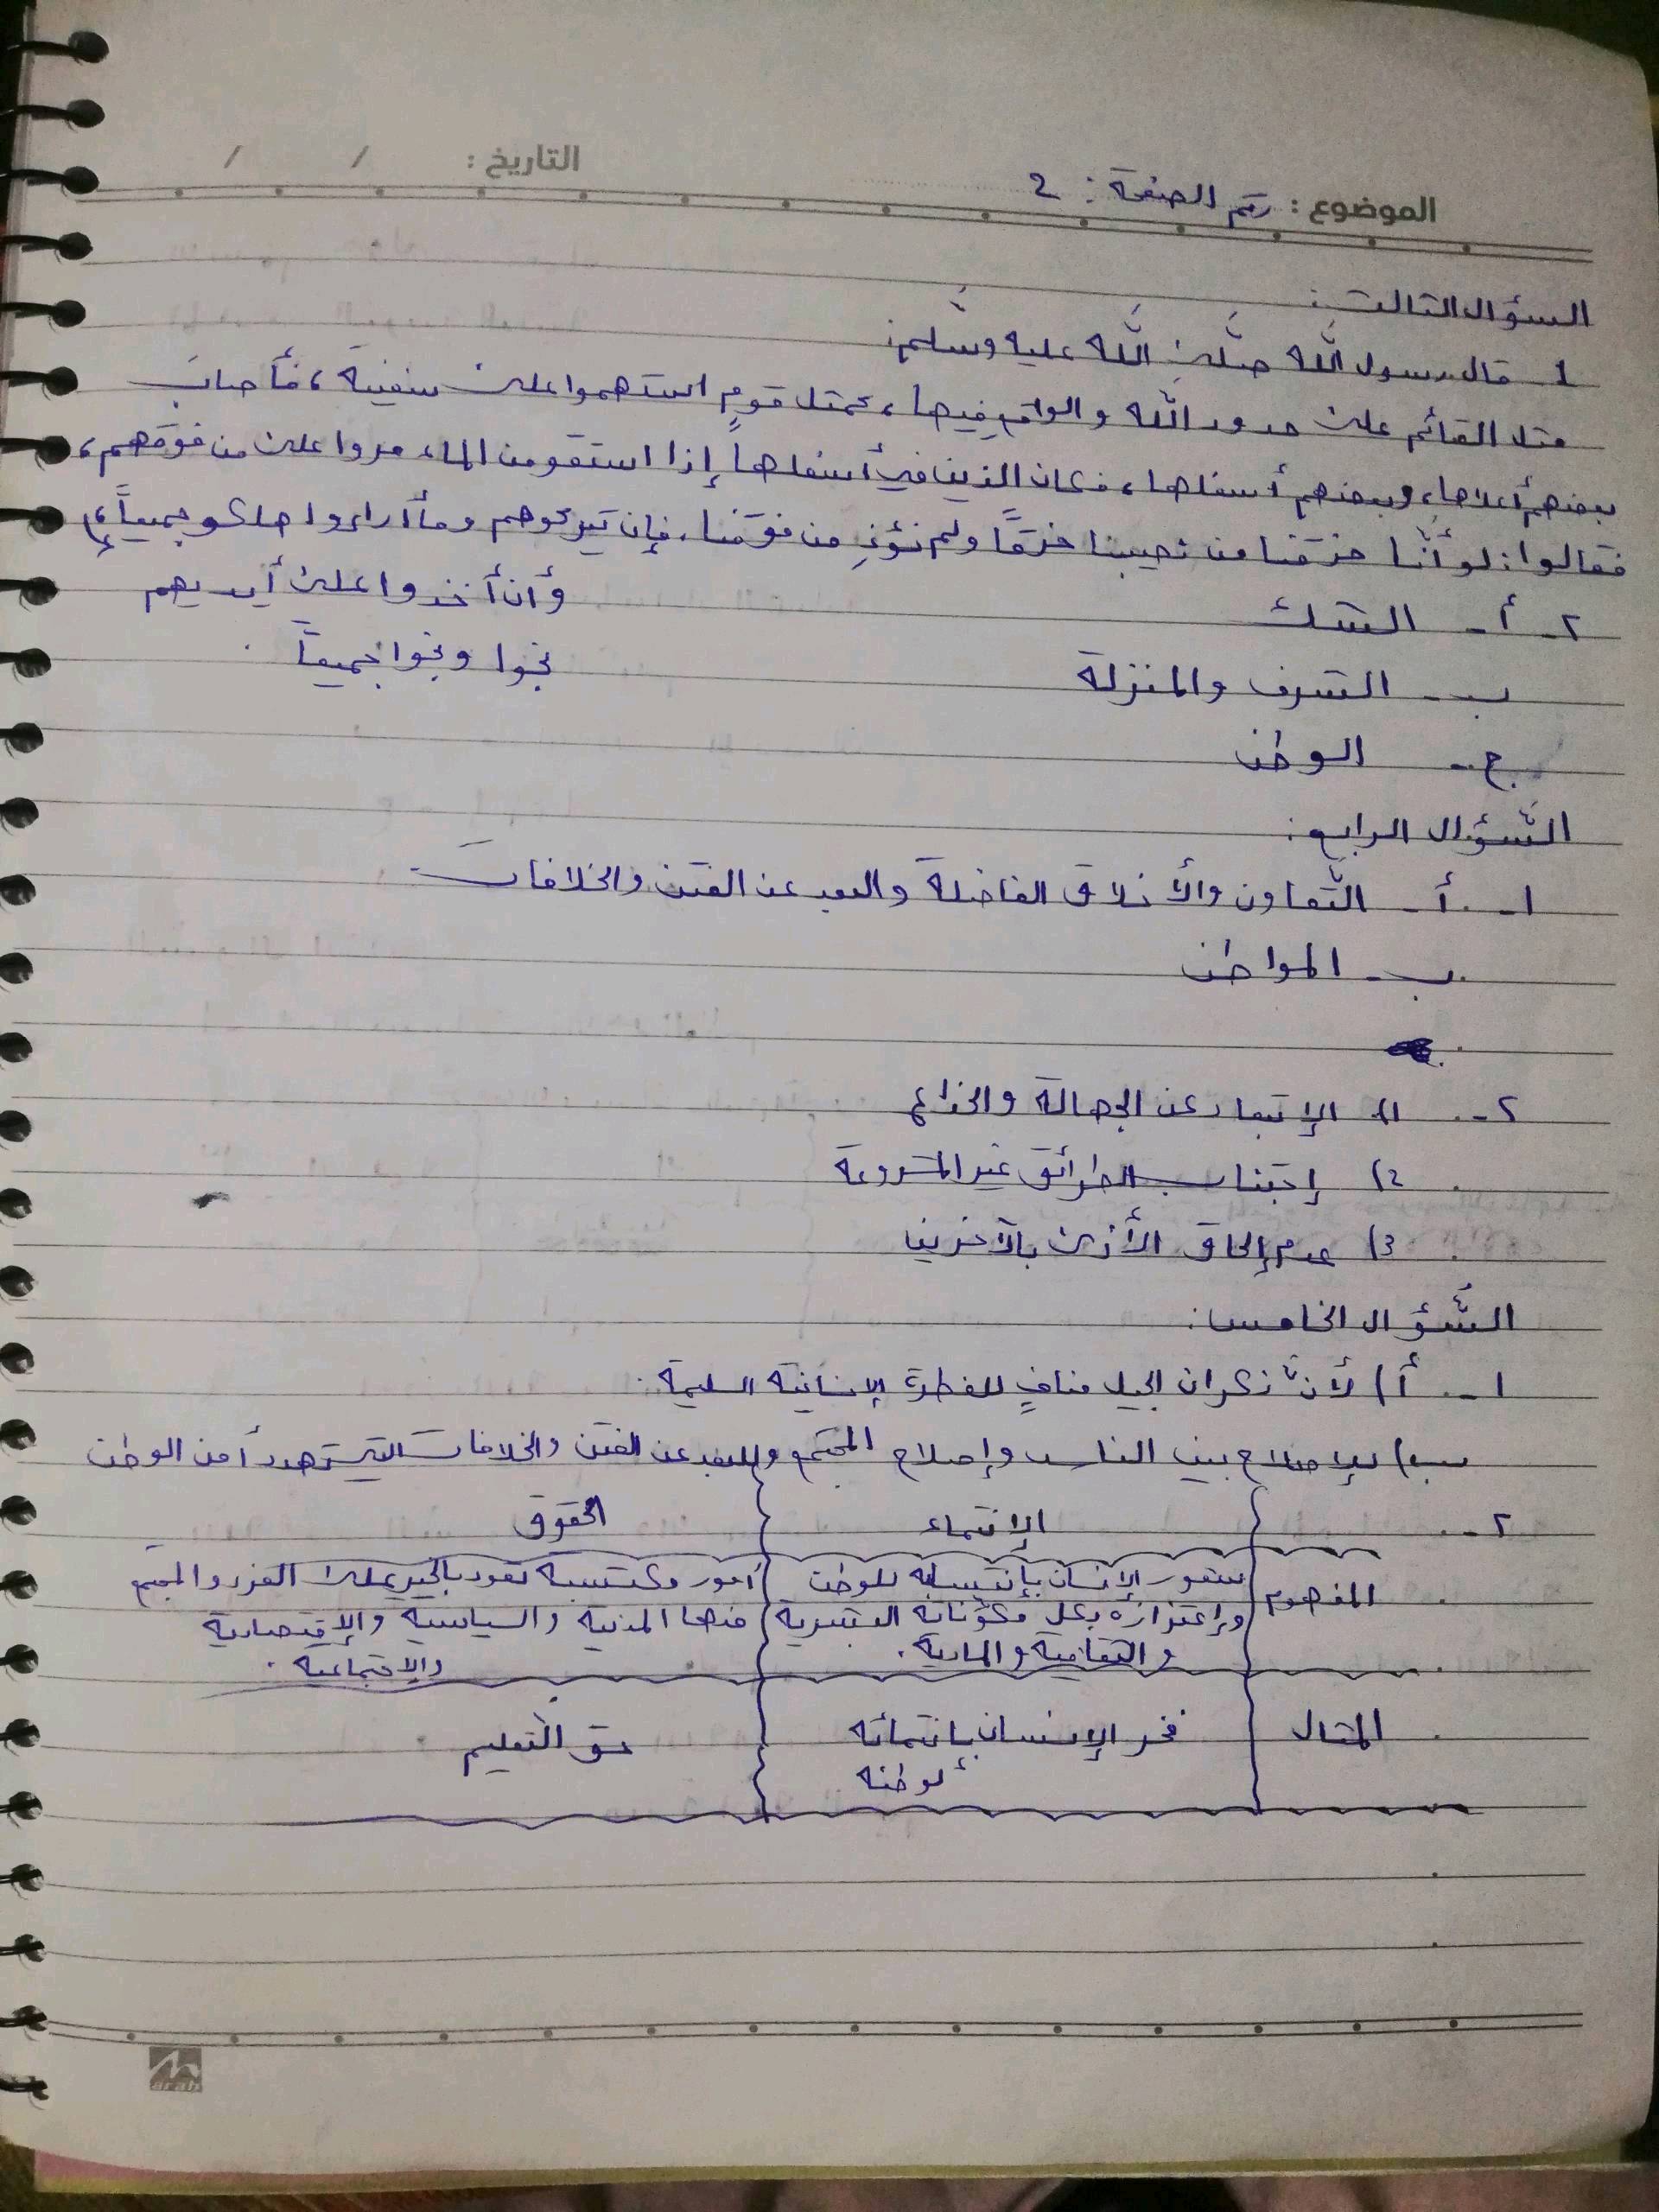 التاريخ : / /
الموضوع : رقم الصفحة : 2
السؤال الثالث :
1 - قال رسول الله صلَّى اللَّه عليه وسلَّم:
مثل القائم على حدود اللَّه والواقع فيها، كمثل قومٍ استهموا على سفينة، فأصاب
بعضهم أعلاها، وبعضهم أسفلها، فكان الذين في أسفلها إذا استقو من الماء مروا على من فوقهم،
فقالوا: لو أنَّا خرقنا من نصيبنا خرقاً ولم نؤذِ من فوقنا، فإن تركوهم وما أرادوا هلكو جميعاً،
وأن أخذوا على أيديهم
نجوا ونجوا جميعاً .
٢ - أ - الشك
ب - الشرف والمنزلة
ج - الوطن
السُّؤال الرابع:
١ - أ - التَّعاون والأخلاق الفاضلة والبعد عن الفتن والخلافات
ب - المواطن
٢ - 1) الإبتعاد عن الجهالة والخداع
2) إجتناب الطرائق غير المشروعة
3) عدم إلحاق الأذى بالآخرين
السُّؤال الخامس:
١ - أ) لأنَّ نكران الجيل منافٍ للفطرة الإنسانية السليمة .
ب) للإصلاح بين الناس وإصلاح المجتمع وللبعد عن الفتن والخلافات التي تهدد أمن الوطن
٢ - الإنتماء الحقوق
المفهوم شعور الإنسان بإنتسابه للوطن أمور مكتسبة تعود بالخير على الفرد والمجتمع
وإعتزازه بكل مكوِّناته البشرية منها المدنية والسياسية والإقتصادية
والثقافية والمادية . والاجتماعية .
المثال فخر الإنسان بإنتمائه حق التَّعليم
لوطنه
arab